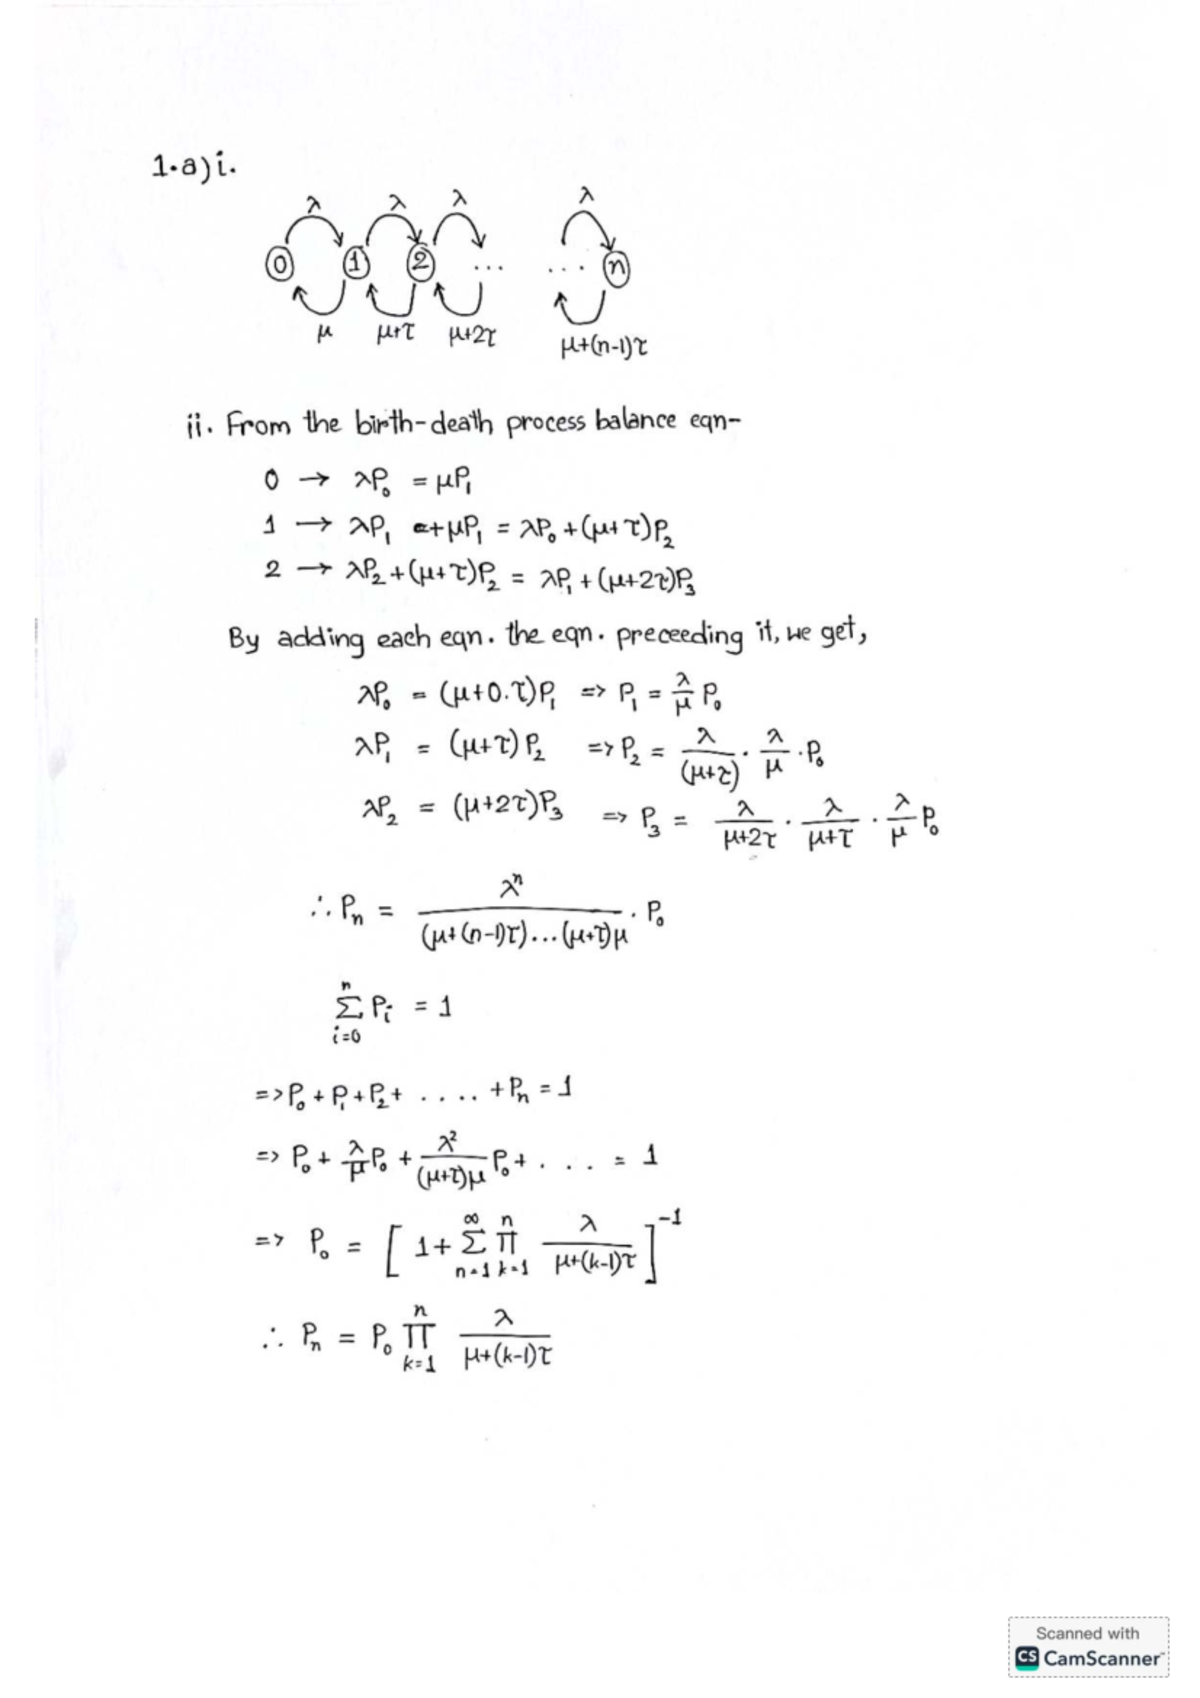 1.a) i.
λ λ λ λ
0 1 2 ... ... n
μ μ+τ μ+2τ μ+(n-1)τ
ii. From the birth-death process balance eqn-
0 → λP₀ = μP₁
1 → λP₁ + μP₁ = λP₀ + (μ+τ)P₂
2 → λP₂ + (μ+τ)P₂ = λP₁ + (μ+2τ)P₃
By adding each eqn. the eqn. preceeding it, we get,
λP₀ = (μ+0.τ)P₁ => P₁ = λ/μ P₀
λP₁ = (μ+τ)P₂ => P₂ = λ/(μ+τ) · λ/μ · P₀
λP₂ = (μ+2τ)P₃ => P₃ = λ/μ+2τ · λ/μ+τ · λ/μ P₀
∴ Pₙ = λⁿ/(μ+(n-1)τ)...(μ+τ)μ · P₀
n Σ i=0 Pᵢ = 1
=> P₀ + P₁ + P₂ + .... + Pₙ = 1
=> P₀ + λ/μ P₀ + λ²/(μ+τ)μ P₀ + ... = 1
=> P₀ = [ 1 + ∞ Σ n=1 n Π k=1 λ/μ+(k-1)τ ]⁻¹
∴ Pₙ = P₀ n Π k=1 λ/μ+(k-1)τ
Scanned with
CS CamScanner™